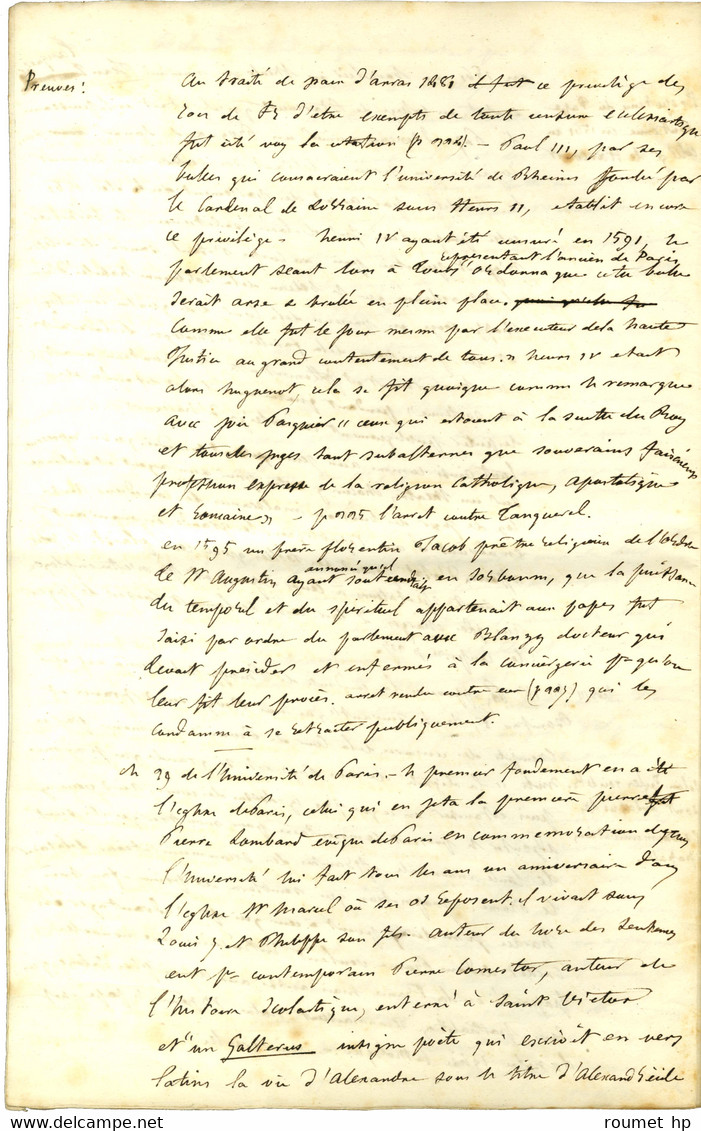 Preuves!
Au traité de paix d'arras 1481 il fut ce privilège des
rois de Fr d'etre exempts de toute censure ecclesiastique
fut cité voy la citation (p 224). – Paul III, par ses
bulles qui consacraient l'université de Rheims fondée par
le Cardenal de Lorraine sous Henri II, etablit encore
ce privilège. henri IV ayant été censuré en 1591, le
représentant l'ancien de Paris
parlement seant lors à Tours " ordonna que cette bulle
serait arse et brulée en pleine place.
Comme elle fut le jour mesme par l'executeur de la haute
Justice au grand contentement de tous. " henri IV etait
alors huguenot, cela se fit quoique comme le remarque
avec joie Pasquier " ceux qui estoient à la suitte du Roy
et tous les juges tant subalternes que souverains faisoient
profession expresse de la religion Catholique, apostolique
et romaine " – p 225 l'arret contre Tanquerel.
en 1595 un frère florentin Jacob prêtre religieux de l'ordre
annoncé qu'il
de St Augustin ayant soutiendrait en Sorbonne, que la puissance
du temporel et du spirituel appartenait aux papes fut
saisi par ordre du parlement avec Blanzy docteur qui
devait presider et enfermés à la conciergerie pr qu'on
leur fit leur procès. arret rendu contre eux (p 225) qui les
condamne à se retracter publiquement.
ch 29 de l'Université de Paris. – le premier fondement en a été
l'eglise de Paris, celui qui en jeta la premiere pierre fut
Pierre Lombard evêque de Paris en commemoration de quoi
l'Université lui fait tous les ans un anniversaire dans
l'eglise St Marcel où ses os reposent. il vivait sous
Louis 7 et Philippe son fils. auteur du livre des Sentences
eut pr contemporain Pierre Comestor, auteur de
l'histoire scolastique, enterré à Saint Victor
et "un Galterus insigne poète qui escrivit en vers
latins la vie d'Alexandre sous le titre d'Alexandreide
roumet hp